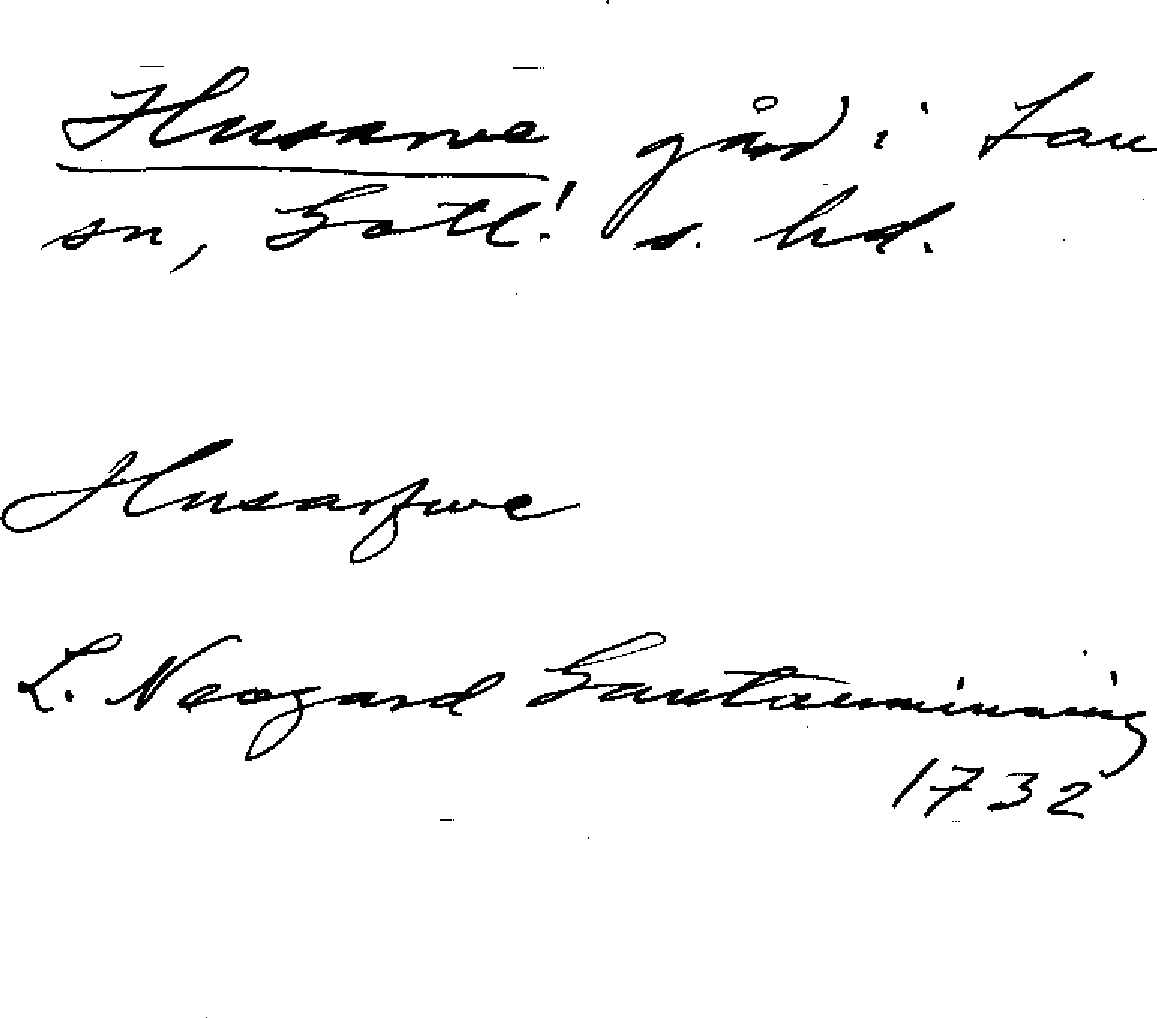 Husarve gård i Lau
sn, Gotl! s. hd.
Husarfwe
L. Neogard Gautauminning
1732